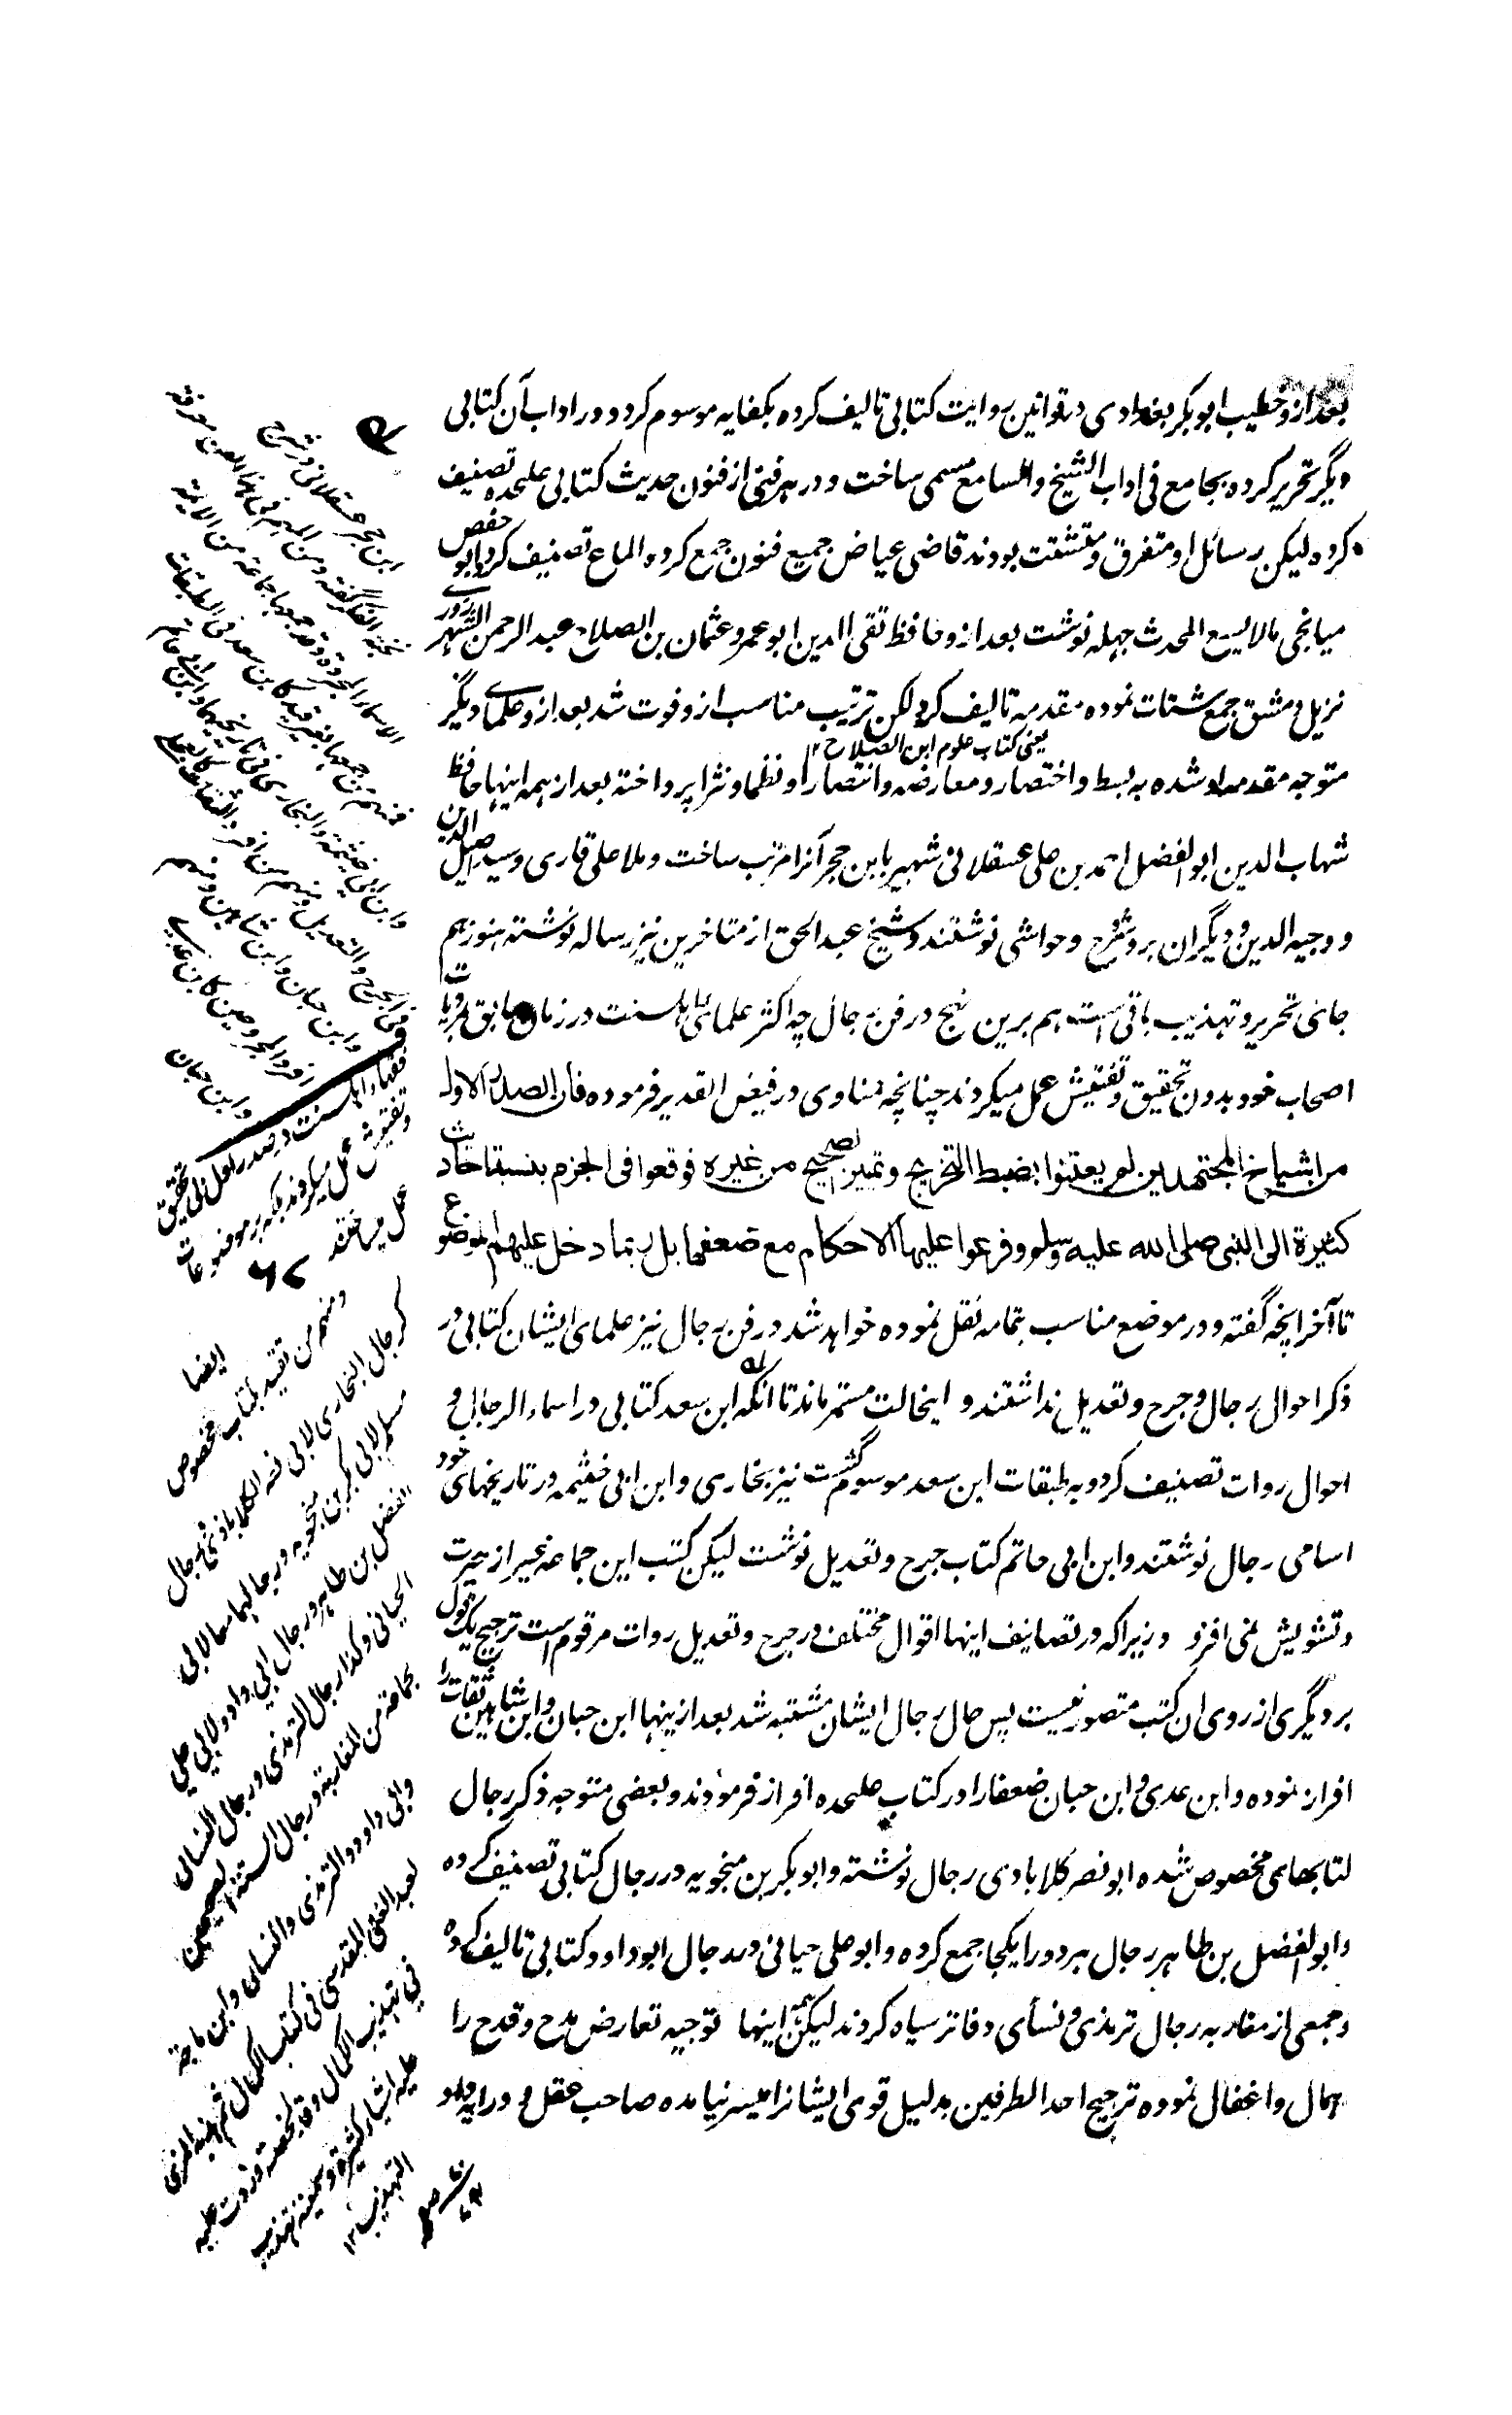 بعد ازو خطیب ابو بکر بغدادی در قوانین روایت کتابی تالیف کرده بکفایه موسوم کرد و در اداب آن کتابی
دیگر تحریر کرده بجامع فی اداب الشیخ والسامع مسمی ساخت و در هر فنی از فنون حدیث کتابی علحده تصنیف
کرده لیکن رسائل او متفرق و متشتت بودند قاضی عیاض جمیع فنون جمع کرده الماع تصنیف کرد و ابو حفص
میانجی مالایسع المحدث جهله نوشت بعد ازو حافظ تقی الدین ابو عمرو عثمان بن الصلاح عبد الرحمن الشهرزوری
نزیل دمشق جمع شتات نموده مقدمه تالیف کرد لکن ترتیب مناسب ازو فوت شد بعد ازو علمای دیگر
یعنی کتاب علوم ابن الصلاح ۱۲
متوجه مقدمه او شده به بسط و اختصار و معارضه و انتصارا و نظما و نثرا پرداخته بعد از همه اینها حافظ
شهاب الدین ابو الفضل احمد بن علی عسقلانی شهیر بابن حجر آنرا مرتب ساخت و ملا علی قاری و سید اصیل الدین
و وجیه الدین و دیگران برو شرح و حواشی نوشتند و شیخ عبد الحق از متاخرین نیز رساله نوشته هنوز هم
جای تحریر و تهذیب باقی است هم برین نهج در فن رجال چه اکثر علمای اهلسنت در زمان سابق بر مرویات
اصحاب خود بدون تحقیق و تفتیش عمل میکردند چنانچه مناوی در فیض القدیر فرموده فان الصدر الاول
من اشیاخ المجتهدین لم یعتنوا بضبط التخریج و تمییز الصحیح من غیره فوقعوا فی الجزم بنسبة احادیث
کثیرة الی النبی صلی الله علیه وسلم و فرعوا علیها الاحکام مع ضعفها بل ربما دخل علیهم الموضوع
تا آخر آنچه گفته و در موضع مناسب بتمامه نقل نموده خواهد شد در فن رجال نیز علمای ایشان کتابی در
ذکر احوال رجال و جرح و تعدیل نداشتند و اینحالت مستمر ماند تا آنکه ابن سعد کتابی در اسماء الرجال و
احوال روات تصنیف کرد و به طبقات ابن سعد موسوم گشت نیز بخاری و ابن ابی خیثمه در تاریخهای خود
اسامی رجال نوشتند و ابن ابی حاتم کتاب جرح و تعدیل نوشت لیکن کتب این جماعه غیر از حیرت
و تشویش نمی افزود زیرا که در تصانیف اینها اقوال مختلف در جرح و تعدیل روات مرقوم است ترجیح یک قول
بر دیگری از روی ان کتب متصور نیست پس حال رجال ایشان مشتبه شد بعد ازینها ابن حبان و ابن شاهین ثقات را
افراز نموده و ابن عدی و ابن حبان ضعفا را در کتاب علحده افراز فرمودند و بعضی متوجه ذکر رجال
کتابهای مخصوص شده ابو نصر کلابادی رجال نوشته و ابو بکر بن منجویه در رجال کتابی تصنیف کرده
و ابو الفضل بن طاهر رجال هر دو را یکجا جمع کرده و ابو علی حیانی در رجال ابو داود کتابی تالیف کرده
و جمعی از مغاربه رجال ترمذی و نسأی دفاتر سیاه کردند لیکن همه اینها توجیه تعارض مدح و قدح را
اهمال و اغفال نموده ترجیح احد الطرفین بدلیل قوی ایشانرا میسر نیامده صاحب عقل و
ابن حجر عسقلانی در شرح
نخبة الفکر گفته و من المهم فی هذا الفن معرفة
الاسماء المجردة وقد جمعها جماعة من الائمة
فمنهم من جمعها بغیر قید کابن سعد فی الطبقات
وابن ابی خیثمة والبخاری فی تاریخیهما وابن ابی حاتم
فی الجرح والتعدیل ومنهم من افرد الثقات کالعجلی
وابن حبان وابن شاهین ومنهم
افرد المجروحین کابن عدی
وابن حبان
فقهاء اهلسنت در صدر اول بی تحقیق
و تفتیش عمل میکردند بلکه بر موضوعات
عمل میساختند
ایضا
ومنهم من تقید بکتاب مخصوص
کرجال البخاری لابی نصر الکلاباذی ورجال
مسلم لابی بکر بن منجویه ورجالهما معا لابی
الفضل بن طاهر ورجال ابی داود لابی علی
الجیانی وکذا رجال الترمذی ورجال النسائی
لجماعة من المغاربة ورجال الستة الصحیحین
وابی داود والترمذی والنسائی وابن ماجة
لعبد الغنی المقدسی فی کتاب الکمال ثم هذبه المزی
فی تهذیب الکمال وقد لخصته وزدت علیه
علیه اشیاء کثیرة وسمیته تهذیب
التهذیب ۱۲